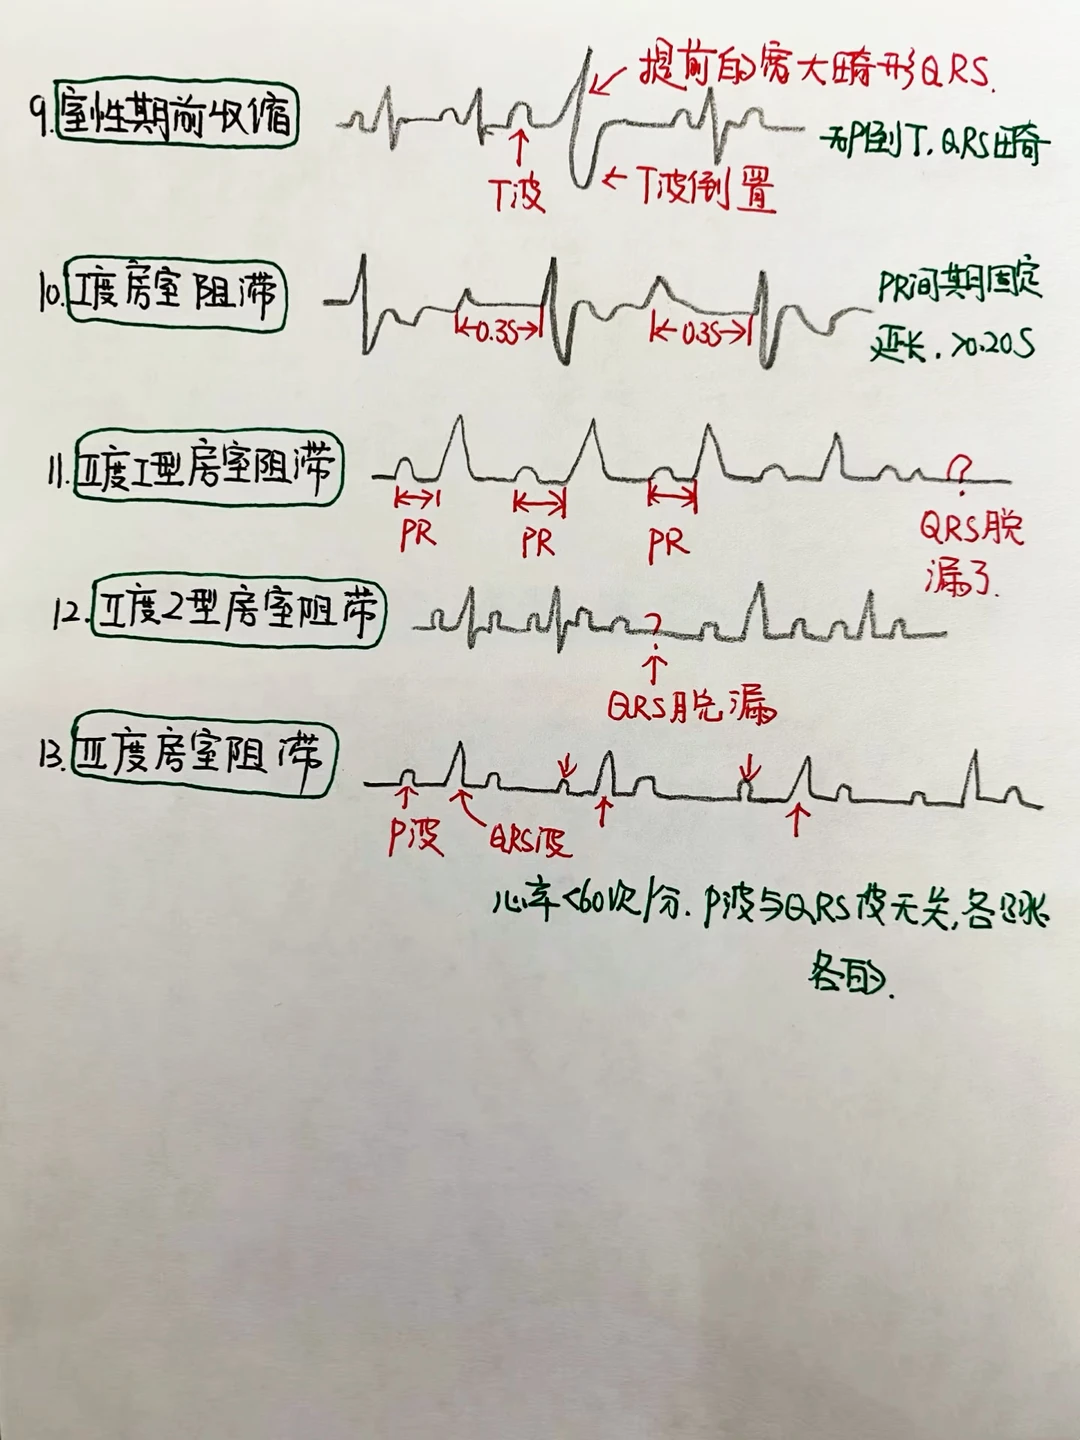 提前的宽大畸形QRS.
9.室性期前收缩
无P倒T.QRS畸
T波
←T波倒置
10.I度房室阻滞
PR间期固定
延长.>0.20S
0.3S
0.3S
11.II度I型房室阻滞
?
PR
PR
PR
QRS脱
漏了.
12.II度2型房室阻滞
?
QRS脱漏
13.III度房室阻滞
P波
QRS波
心率<60次/分.P波与QRS波无关,各跳
各的.